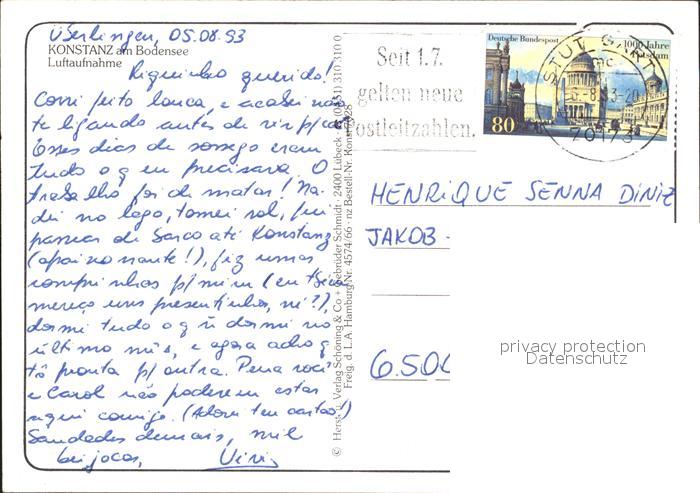 Überlingen, 05.08.93
KONSTANZ am Bodensee
Luftaufnahme
Riquinho querido!
Corri feito louca, e acabei não
te ligando antes de vir p/cá.
Esses dias de sossego eram
tudo o q eu precisava. O
trabalho foi de matar! Na-
dei no lago, tomei sol, fui
passear de barco até Konstanz
(apaixonante!), fiz umas
comprinhas p/ mim (eu
mereço uns presentinhos, né?),
dormi tudo o q ñ dormi no
último mês, e agora acho q
tô pronta p/ outra. Pena você
e Carol não poderem estar
aqui comigo. (Adorei teu cartão!)
Saudades demais, mil
beijocas, Vivi
© Herst. u. Verlag Schöning & Co + Gebrüder Schmidt · 2400 Lübeck (0451) 310 310 0
Freig. d. L.A. Hamburg Nr. 4574/66 - nz Bestell-Nr. Konst
Seit 1.7.
gelten neue
Postleitzahlen.
Deutsche Bundespost
1000 Jahre
Potsdam
80
STUTTGART
mc
-8.93-20
70173
HENRIQUE SENNA DINIZ
JAKOB -
6.500
privacy protection
Datenschutz